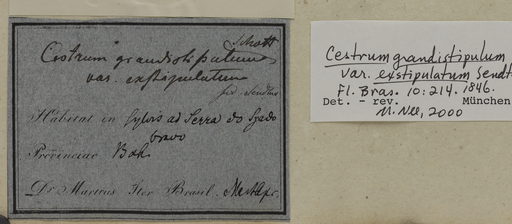 Schott
Cestrum grandistipulum
var. exstipulatum
Sendtn
Habitat in sylvis ad Serra do
bravo
Provinciae Bah.
Dr. Martius Iter Brasil.
Cestrum grandistipulum
var. exstipulatum Sendt
Fl. Bras. 10:214. 1846.
Det. - rev. München
M. Nee, 2000